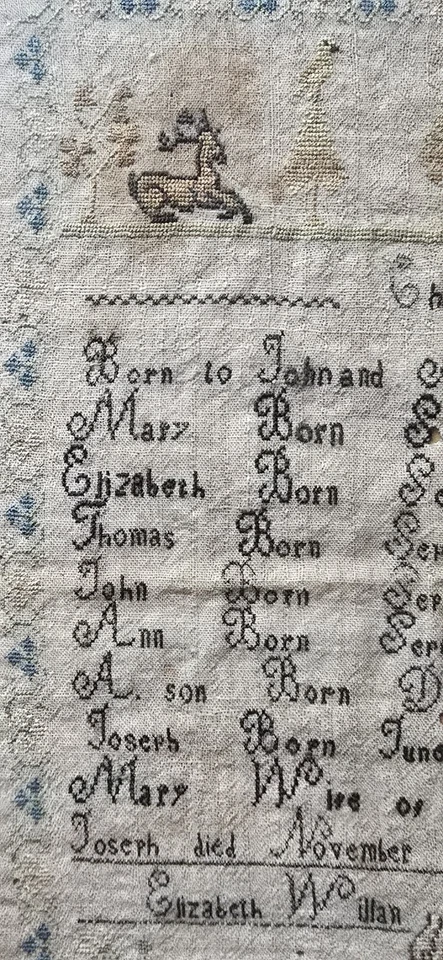 Ch
Born to John and
Mary Born S
Elizabeth Born S
Thomas Born Sep
John Born Sep
Ann Born Sep
A. son Born D
Joseph Born June
Mary Wife of
Joseph died November
Elizabeth Willan